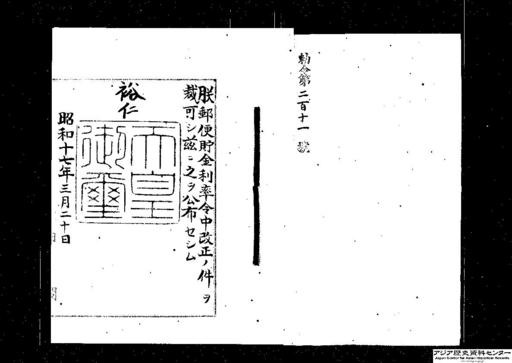 勅令第二百十一號
朕郵便貯金利率令中改正ノ件ヲ
裁可シ茲ニ之ヲ公布セシム
裕仁
天皇御璽
昭和十七年三月二十日
アジア歴史資料センター
Japan Center for Asian Historical Records